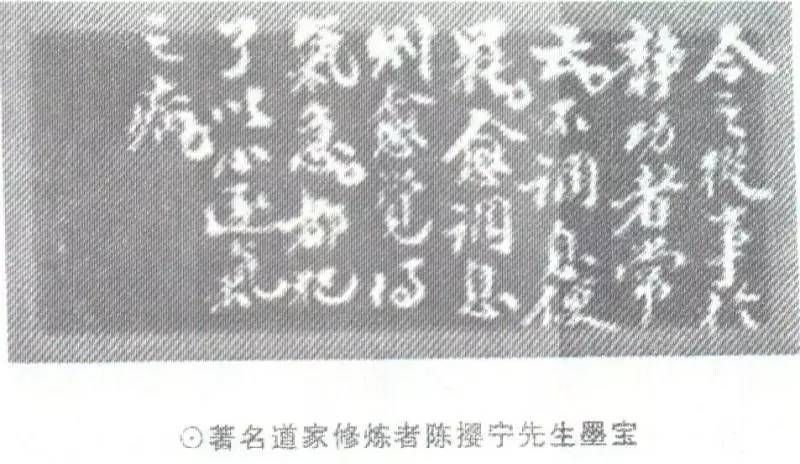 今之從事於
静功者常
云。不調息便
罷。愈調息
則愈覺得
氣急。都犯
了以心逐氣
之病。
⊙著名道家修炼者陈撄宁先生墨宝